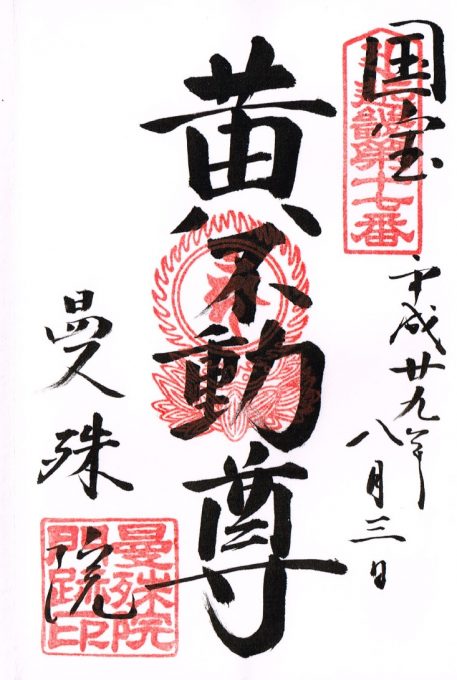 国宝
近畿第十七番
平成廿九年八月三日
黄不動尊
曼殊院
曼殊院
門跡印